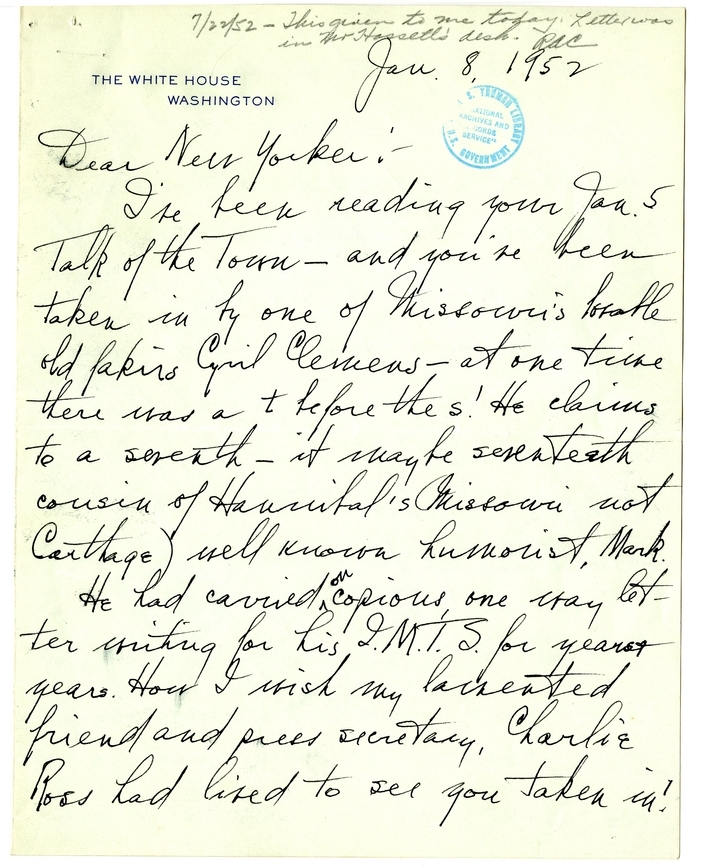 7/22/52 - This given to me today. Letter was
in Mr Hassett's desk. RAC
Jan. 8, 1952
THE WHITE HOUSE
WASHINGTON
S. TRUMAN LIBRARY
NATIONAL
ARCHIVES AND
RECORDS
SERVICE
U.S. GOVERNMENT
Dear New Yorker:-
I've been reading your Jan. 5
Talk of the Town — and you've been
taken in by one of Missouri's lovable
old fakirs Cyril Clemens — at one time
there was a t before the s! He claims
to a seventh — it maybe seventeeth
cousin of Hannibal's (Missouri not
Carthage) well known humorist, Mark.
He had carried on copious, one way let-
ter writing for his I.M.T.S. for years &
years. How I wish my lamented
friend and press secretary, Charlie
Ross had lived to see you taken in!